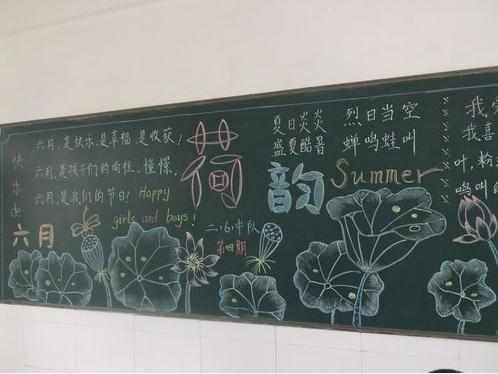 快乐的
六月
六月,是快乐,是幸福,是收获!
六月,是孩子们的向往,憧憬,
六月,是我们的节日! Happy
girls and boys!
荷
韵
二·16中队
第四期
夏日炎炎
盛夏酷暑
烈日当空
蝉鸣蛙叫
Summer
我
我喜
叶,粉
鸣叫的